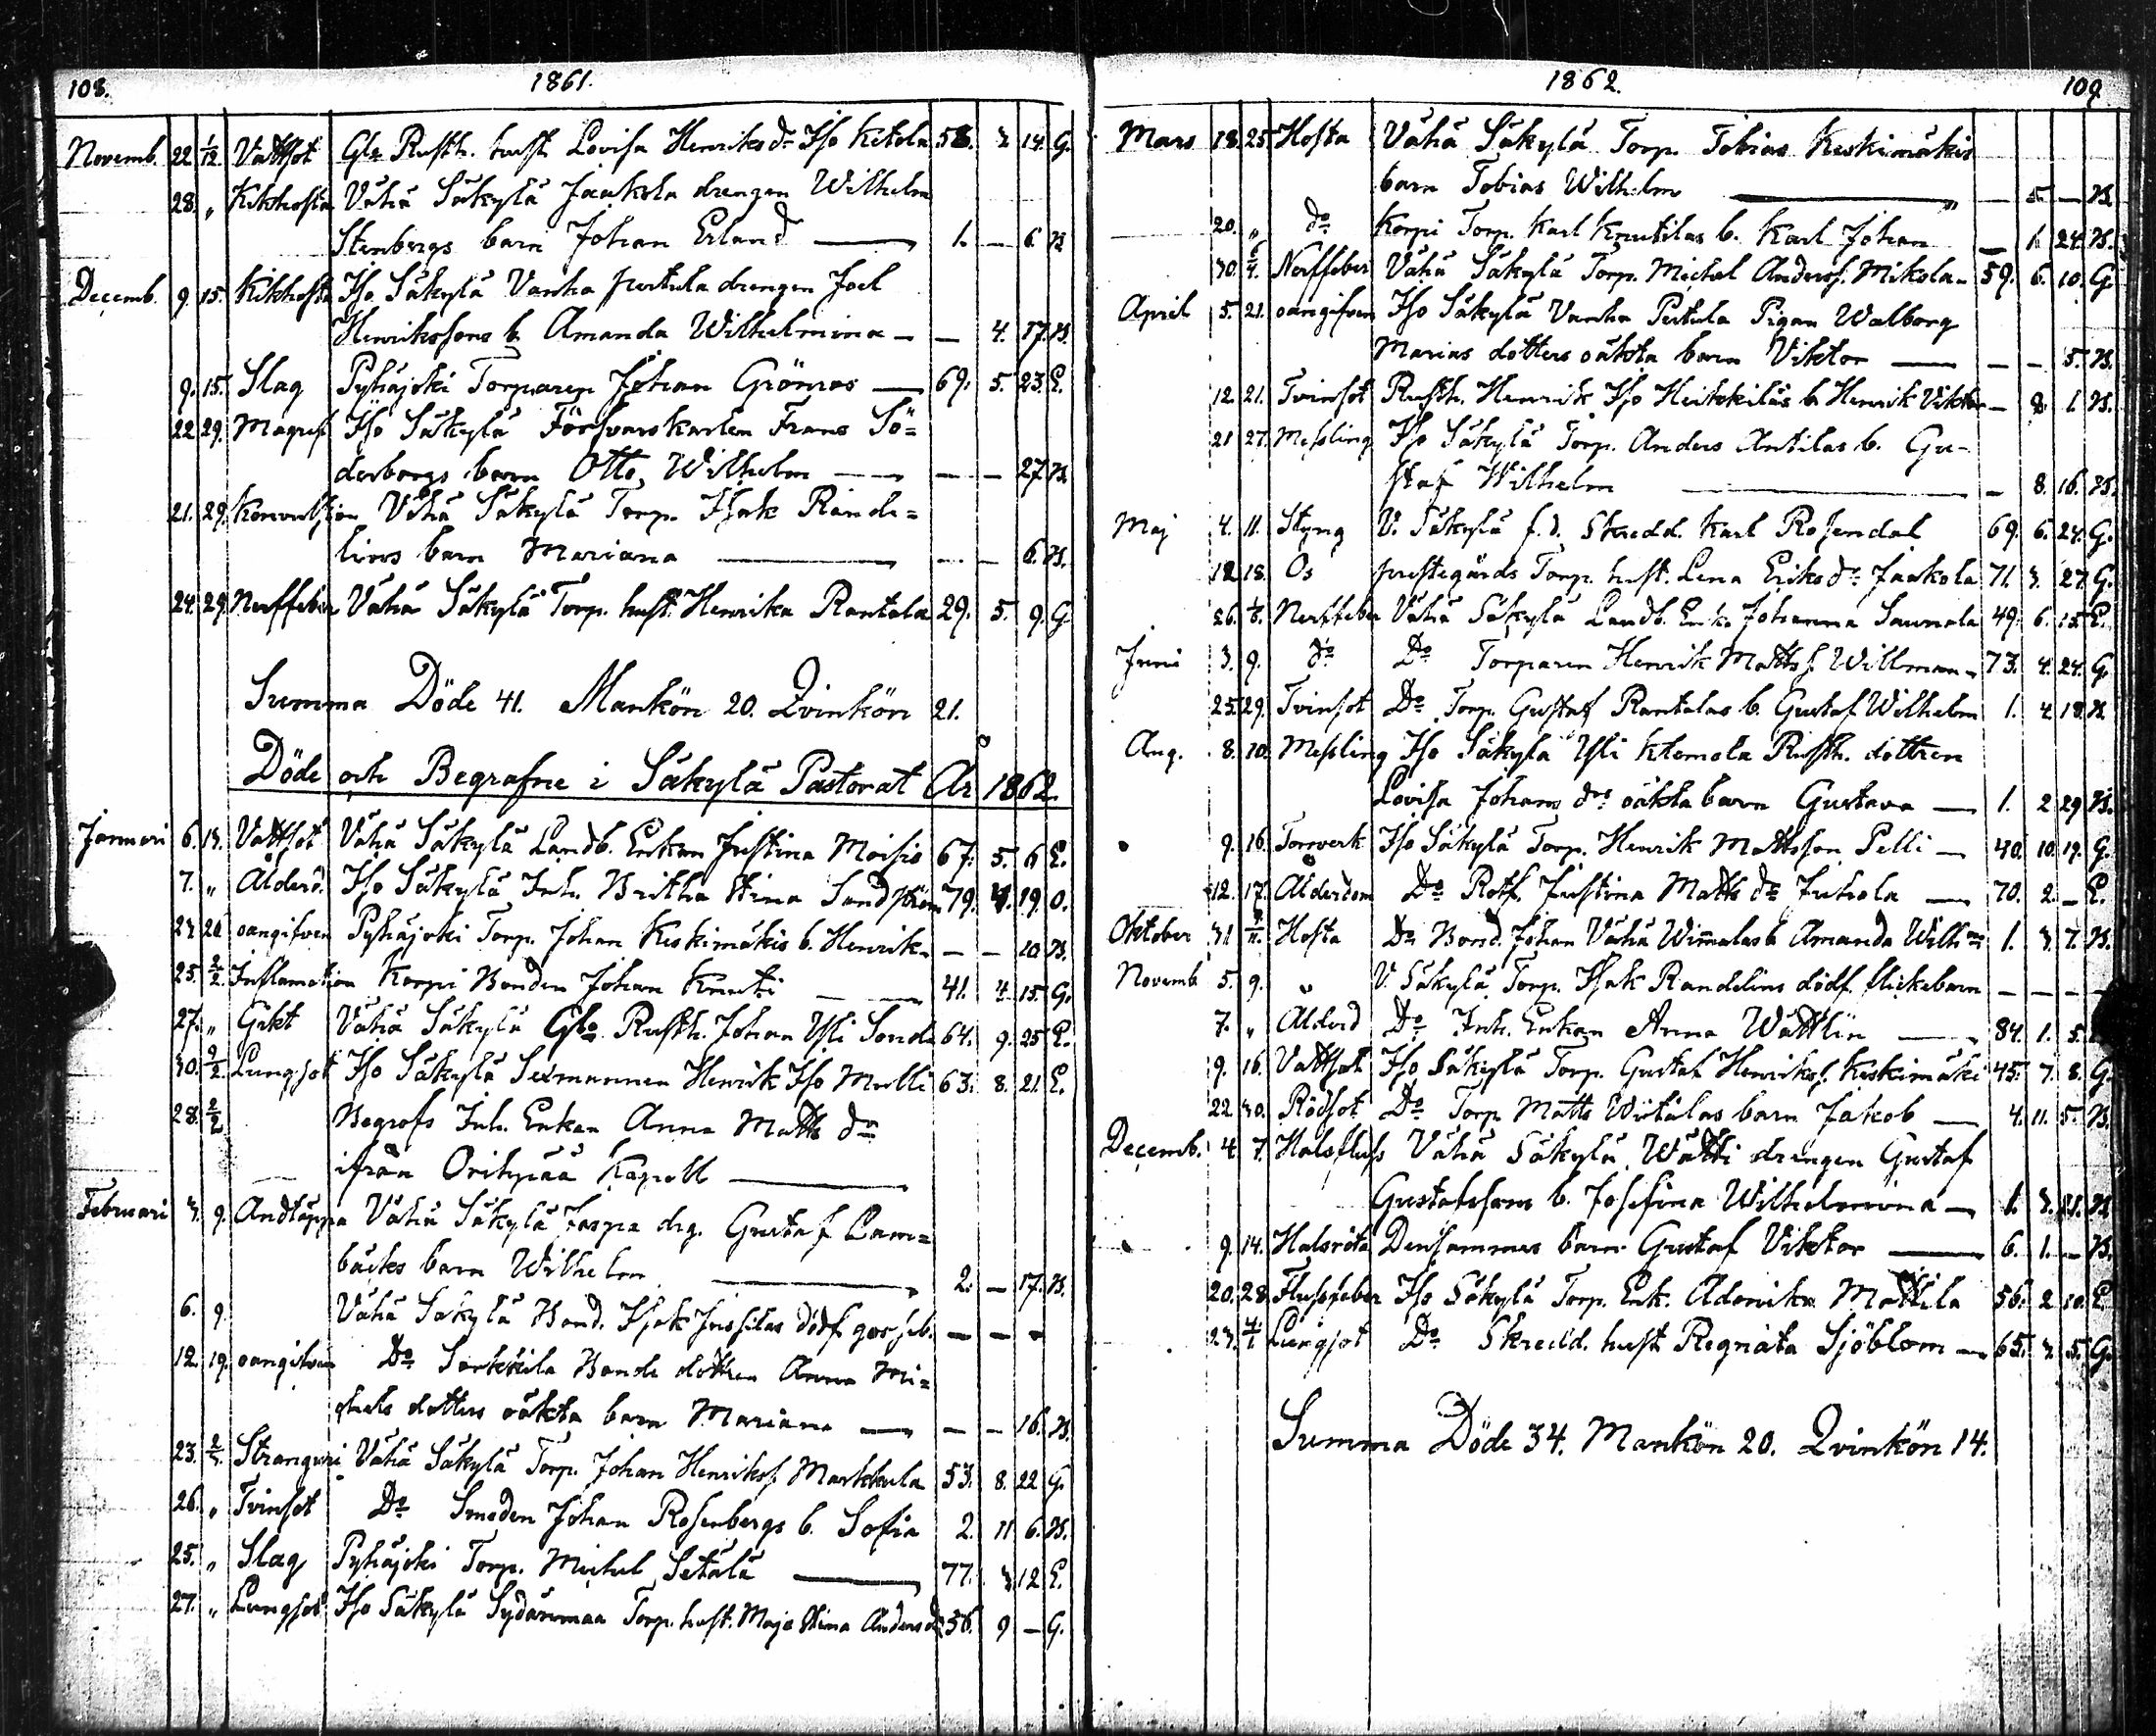 108. 1861.
Novemb. 22 1/12 Vattsot Gla Rusth. hust. Lovisa Henriksdr Iso Kitola 58. 3 14. G.
28. " Kikhosta Vähä Säkylä Jaakola drengen Wilhelm
Stenbergs barn Johan Erland — 1. — 6. B.
Decemb. 9. 15. Kikhosta Iso Säkylä Vanha Pertula drengen Joel
Henrikssons b. Amanda Wilhelmina — — 4. 17. B.
9. 15. Slag Pyhäjoki Torparen Johan Grönroos — 69. 5. 23. E.
22 29. Magref Iso Säkylä Försvarskarlen Frans Sö=
derborgs barn Otto Wilhelm — — — 27. B.
21. 29. Konvulsion Vähä Säkylä Torp. Isak Rande=
lins barn Mariana — — — 6. B.
24. 29. Nerffeber Vähä Säkylä Torp. hust. Henrika Rantala 29. 5. 9. G
Summa Döde 41. Mankön 20. Qvinkön 21.
Döde och Begrafne i Säkylä Pastorat År 1862.
Januari 6. 13. Vattsot Vähä Säkylä Landb. Enkan Justina Moisio 67. 5. 6 E.
7. " Ålderd. Iso Säkylä Inh. Britha Stina Sandström 79. 4. 19. O.
23 26 oangifven Pyhäjoki Torp. Johan Keskimäkis b. Henrik — — 10. B.
25. 2/2 Inflamation Korpi Bonden Johan Knuuti — 41. 4. 15. G.
27. " Gikt Vähä Säkylä Gla Rusth. Johan Yli Sonda 64. 9. 25 E.
30. 9/2 Lungsot Iso Säkylä Sexmannen Henrik Iso Mulli 63. 8. 21. E.
28. 2/2 Begrofs Inh. Enkan Anna Matts dr
ifrån Orihpää Kapell —
Februari 3. 9. Andtäppa Vähä Säkylä Jaspa drg. Gustaf Lam=
bäcks barn Wilhelm — 2. — 17. B.
6. 9. Vähä Säkylä Bond. Isak Jussilas dödf. gosseb. — — —
12. 19. oangifven Do Sorkkila Bonde dottren Anna Mi=
chels dotters oäkta barn Mariana — — — 16. B.
23. 2/3 Stranguri Vähä Säkylä Torp. Johan Henrikss. Markkula 53. 8. 22 G.
26. " Tvinsot Do Smeden Johan Rosenbergs b. Sofia 2. 11 6. B.
25. " Slag Pyhäjoki Torp. Michel Setälä — 77. 3. 12 E.
27. " Lungsot Iso Säkylä Sydänmaa Torp. hust. Maja Stina Andersdr 56. 9 — G.
1862. 109
Mars 18. 25 Hosta Vähä Säkylä Torp. Tobias Keskimäkis
barn Tobias Wilhelm — — 5 — B.
20. " do Korpi Torp. Karl Knutilas b. Karl Johan — 1. 24. B.
30. 6/4 Nerffeber Vähä Säkylä Torp. Michel Anderss. Mikola — 59. 6. 10. G.
April 5. 21. oangifven Iso Säkylä Vanha Pertula Pigan Walborg
Marias dotters oäkta barn Viktor — — — 5. B.
12. 21. Tvinsot Rusth. Henrik Iso Heikkiläs b. Henrik Viktor — 8. 1 B.
21 27. Messling Iso Säkylä Torp. Anders Antilas b. Gu-
staf Wilhelm — — 8. 16. B.
Maj 4. 11. Styng V. Säkylä f. d. Skredd. Karl Rosendal 69. 6. 24. G.
12. 18. Os prestegårds Torp. hust. Lena Eriks dr Jaakola 71. 3. 27. G.
26. 1/6. Nerffeber Vähä Säkylä Landb. Enk. Johanna Saunala 49. 6. 15. E.
Juni 3. 9. do Do Torparen Henrik Mattss. Willman — 73. 4. 24. G.
25. 29. Tvinsot Do Torp. Gustaf Rantalas b. Gustaf Wilhelm 1. 4 18. B.
Aug. 8. 10. Messling Iso Säkylä Yli Klemola Rusth. dottren
Lovisa Johans drs oäkta barn Gustava — 1. 2 29 B.
9. 16. Torrverk Iso Säkylä Torp. Henrik Mattsson Pelli — 40. 10. 19. G.
12. 17. Ålderdom Do Rotf. Justina Matts dr Juhola — 70. 2. — E.
Oktober 31 9/11. Hosta Do Bond. Johan Vähä Wimalas b Amanda Wilhna 1. 3. 7. B.
Novemb. 5. 9. " V. Säkylä Torp. Isak Randelins dödf. flickebarn — — —
7. " Ålderd Do Inh. Enkan Anna Wättlin — 84. 1. 5.
9. 16. Vattsot Iso Säkylä Torp. Gustaf Henrikss. Keskimäki 45. 7. 8. G.
22. 30. Rödsot Do Torp. Matts Wirtalas barn Jakob — 4. 11. 5. B.
Decemb. 4. 7. Halsfluss Vähä Säkylä Wätti drengen Gustaf
Gustafssons b. Josefina Wilhelmina — 1. 3. 21. B.
9. 14. Halsröta Densammes barn Gustaf Viktor — 6. 1. — B.
20. 28. Flussfeber Iso Säkylä Torp. Enk. Adonika Mattila 56. 2 10. E.
23. 4/1 Lungsot Do Skredd. hust Regnata Sjöblom — 65. 3. 5. G.
Summa Döde 34. Mankön 20. Qvinkön 14.